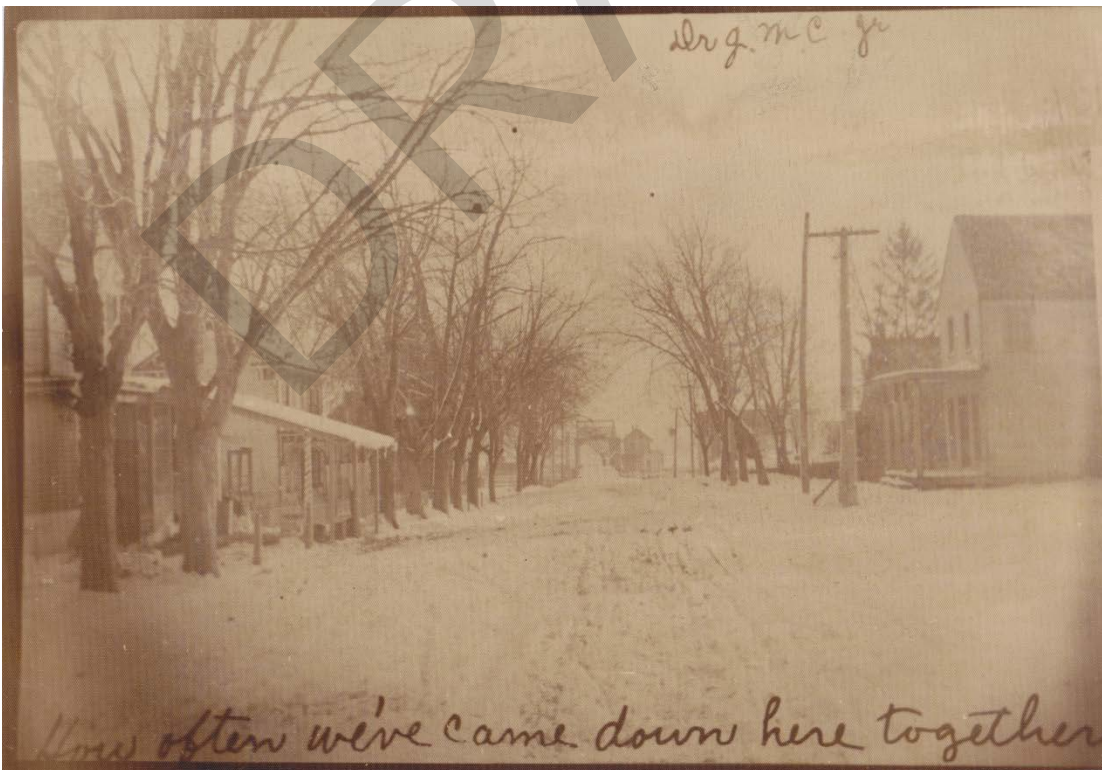 Dr J. M C Jr
How often we've came down here together